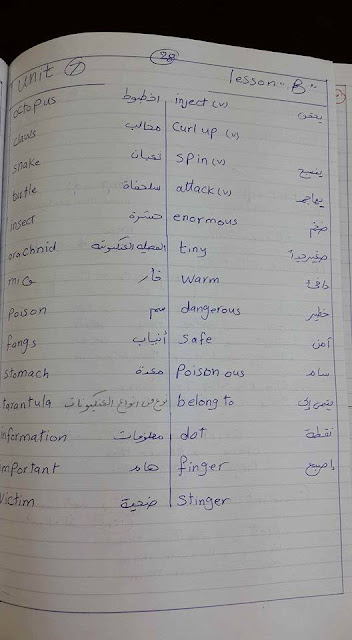 28
unit 7 lesson "B"
octopus اخطبوط inject (v) يحقن
claws مخالب curl up (v)
snake ثعبان spin (v) ينسج
turtle سلحفاة attack (v) يهاجم
insect حشرة enormous ضخم
arachnid الفصيله العنكبوتيه tiny صغير جداً
فأر warm دافئ
poison سم dangerous خطير
fangs أنياب safe آمن
stomach معدة poisonous سام
tarantula نوع من انواع العنكبوتات belong to ينتمى إلى
information معلومات dot نقطة
important هام finger إصبع
victim ضحية stinger